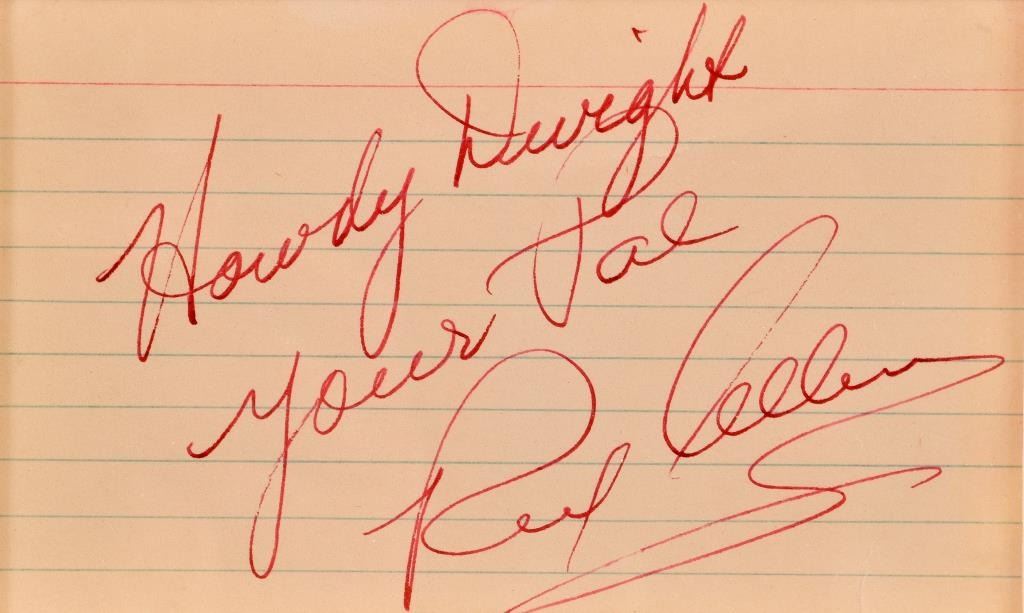 Howdy Dwight
Your Pal
Red Allen